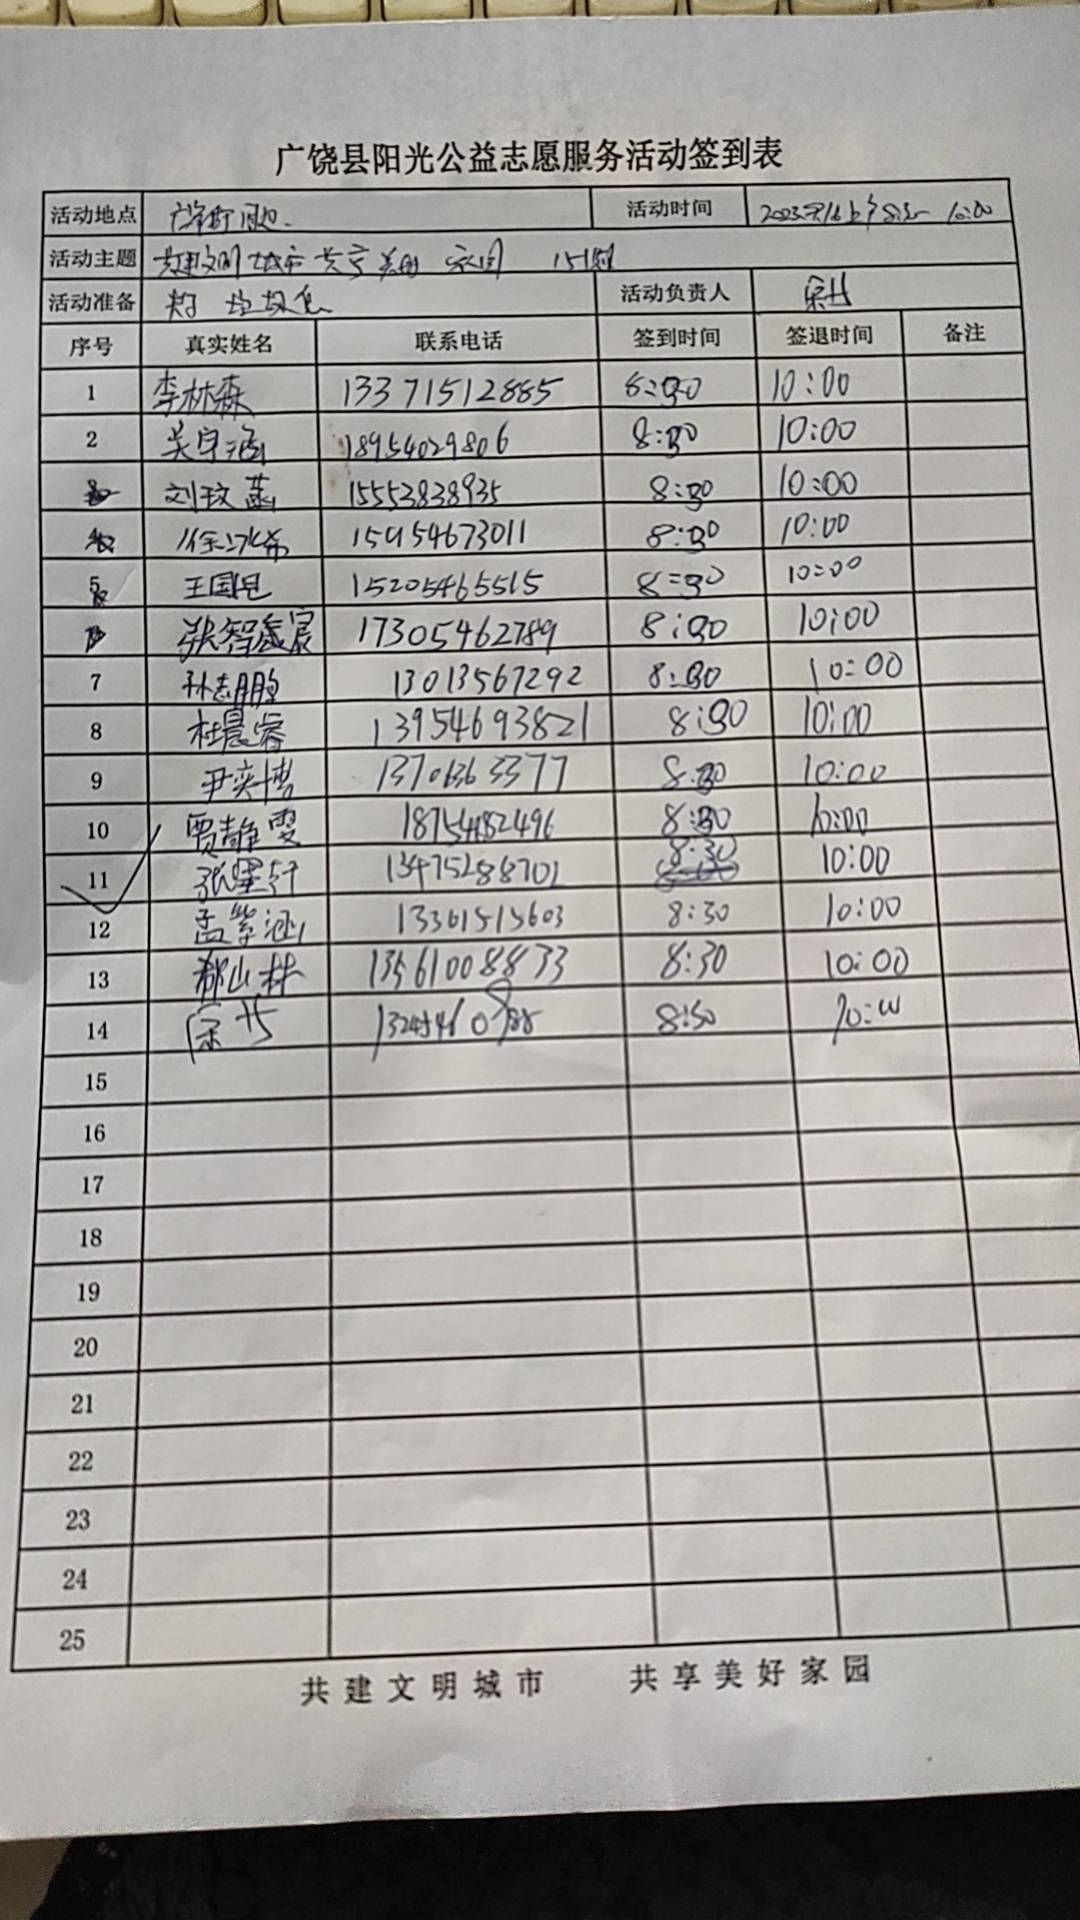 广饶县阳光公益志愿服务活动签到表
活动地点 周边. 活动时间 10:00
活动主题 共建文明城市 共享美好家园
活动准备 垃圾 活动负责人
序号 真实姓名 联系电话 签到时间 签退时间 备注
1 李林森 13371512885 8:30 10:00
2 吴宇涵 18954029806 8:30 10:00
刘玟菡 15553838935 8:30 10:00
徐冰希 15954673011 8:30 10:00
5 王国 15205465515 8:30 10:00
张智宸 17305462789 8:30 10:00
7 孙志鹏 13013567292 8:30 10:00
8 杜晨睿 13954693821 8:30 10:00
9 尹奕博 8:30 10:00
10 贾静雯 18754682496 8:30 10:00
11 张轩 13475288702 8:30 10:00
12 孟紫涵 13361515603 8:30 10:00
13 山林 13561008833 8:30 10:00
14 8:30 10:00
15
16
17
18
19
20
21
22
23
24
25
共建文明城市 共享美好家园